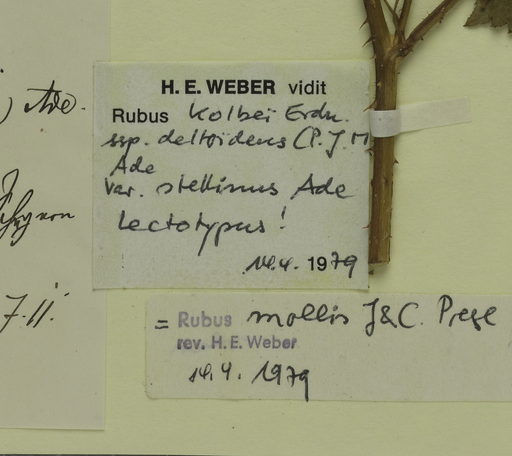 ) Ade.
7. 11.
H. E. WEBER vidit
Rubus Kolbei Erdn.
ssp. deltoideus (P. J. M
Ade
var. stellinus Ade
Lectotypus!
14.4. 1979
= Rubus mollis J & C. Presl
rev. H. E. Weber
14.4. 1979